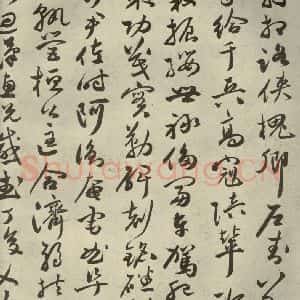 相路俠槐卿户封八
給千兵高冠陪輦驅
轂振纓世祿侈富車駕肥
策功茂實勒碑刻銘磻
尹佐時阿衡奄宅曲阜
孰營桓公匡合濟弱扶
迴漢惠說感武丁俊乂
Shufawang.CN